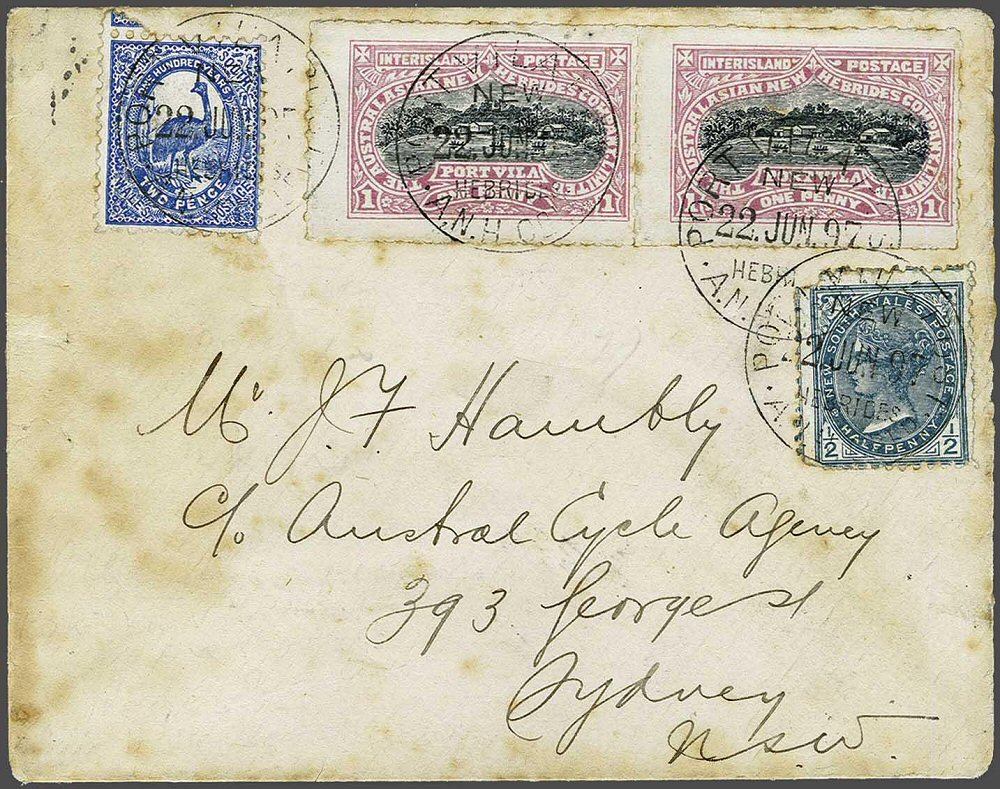 ONE HUNDRED YEARS
TWO PENCE
POSTAGE
INTERISLAND POSTAGE
THE AUSTRALASIAN NEW HEBRIDES COMPANY LIMITED
PORT VILA
1
INTERISLAND POSTAGE
THE AUSTRALASIAN NEW HEBRIDES COMPANY LIMITED
ONE PENNY
1 1
PORT VILA
NEW
22 JUN
HEBRIDES
A.N.H. CO
PORT VILA
NEW
22. JUN. 97
HEBRI
A.N.
NEW SOUTH WALES POSTAGE
1/2 HALFPENNY 1/2
PORT VILA
NEW
22 JUN 97
HEBRIDES
Mr J. F Hambly
c/o Austral Cycle Agency
393 George st
Sydney
NSW.